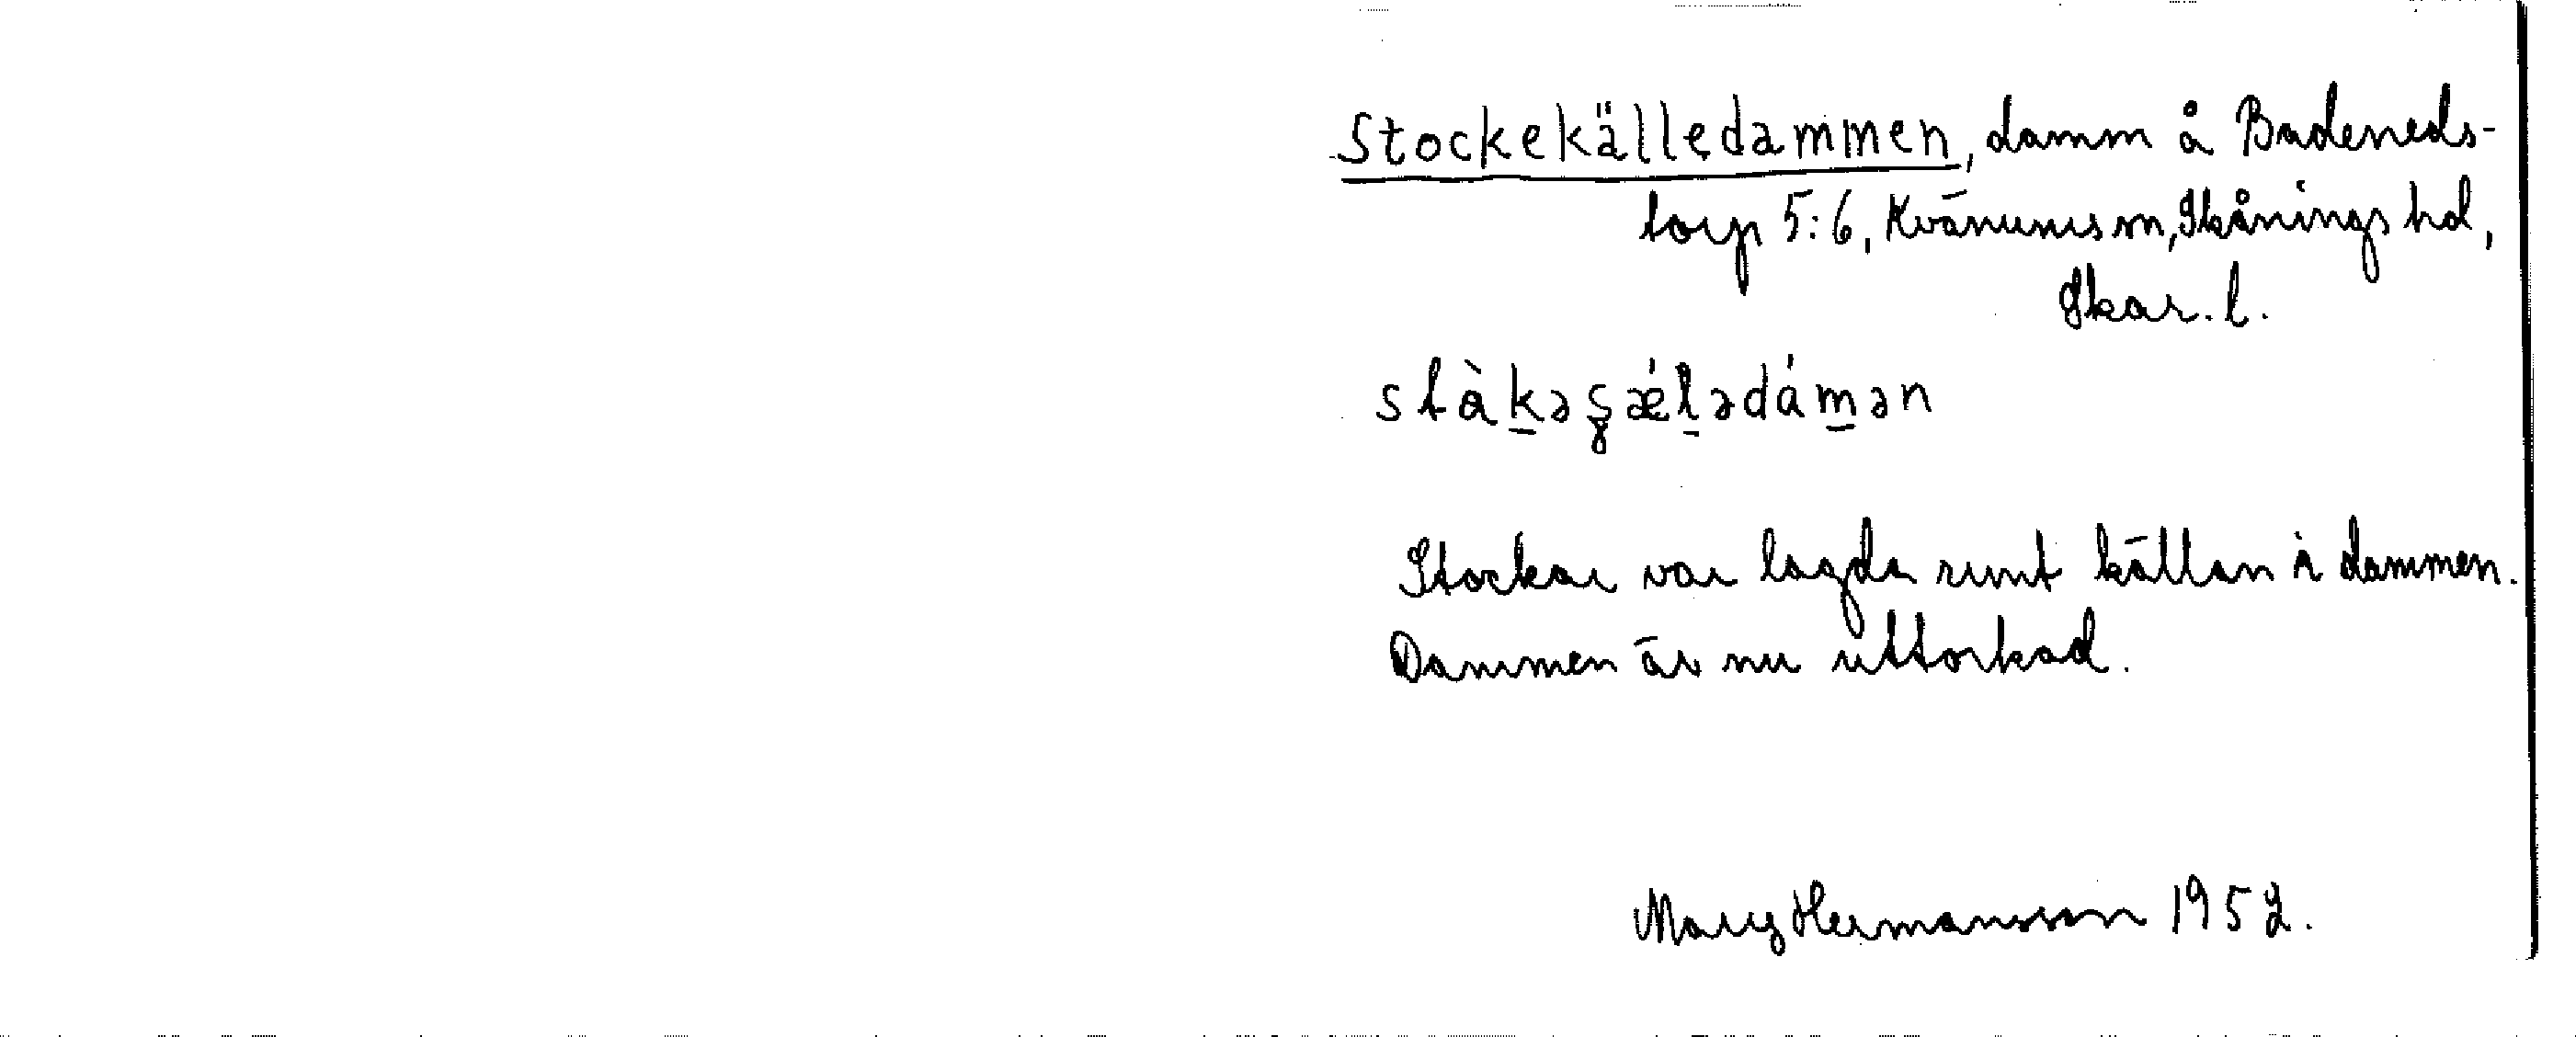 Stockekälledammen, damm å Badeneds-
torp 5:6, Kvänums sn, Skånings hd,
Skar. l.
stàk̲əʂǽl̲ədám̲ən
Stockar var lagda runt källan i dammen.
Dammen är nu uttorkad.
Mary Hermansson 1952.